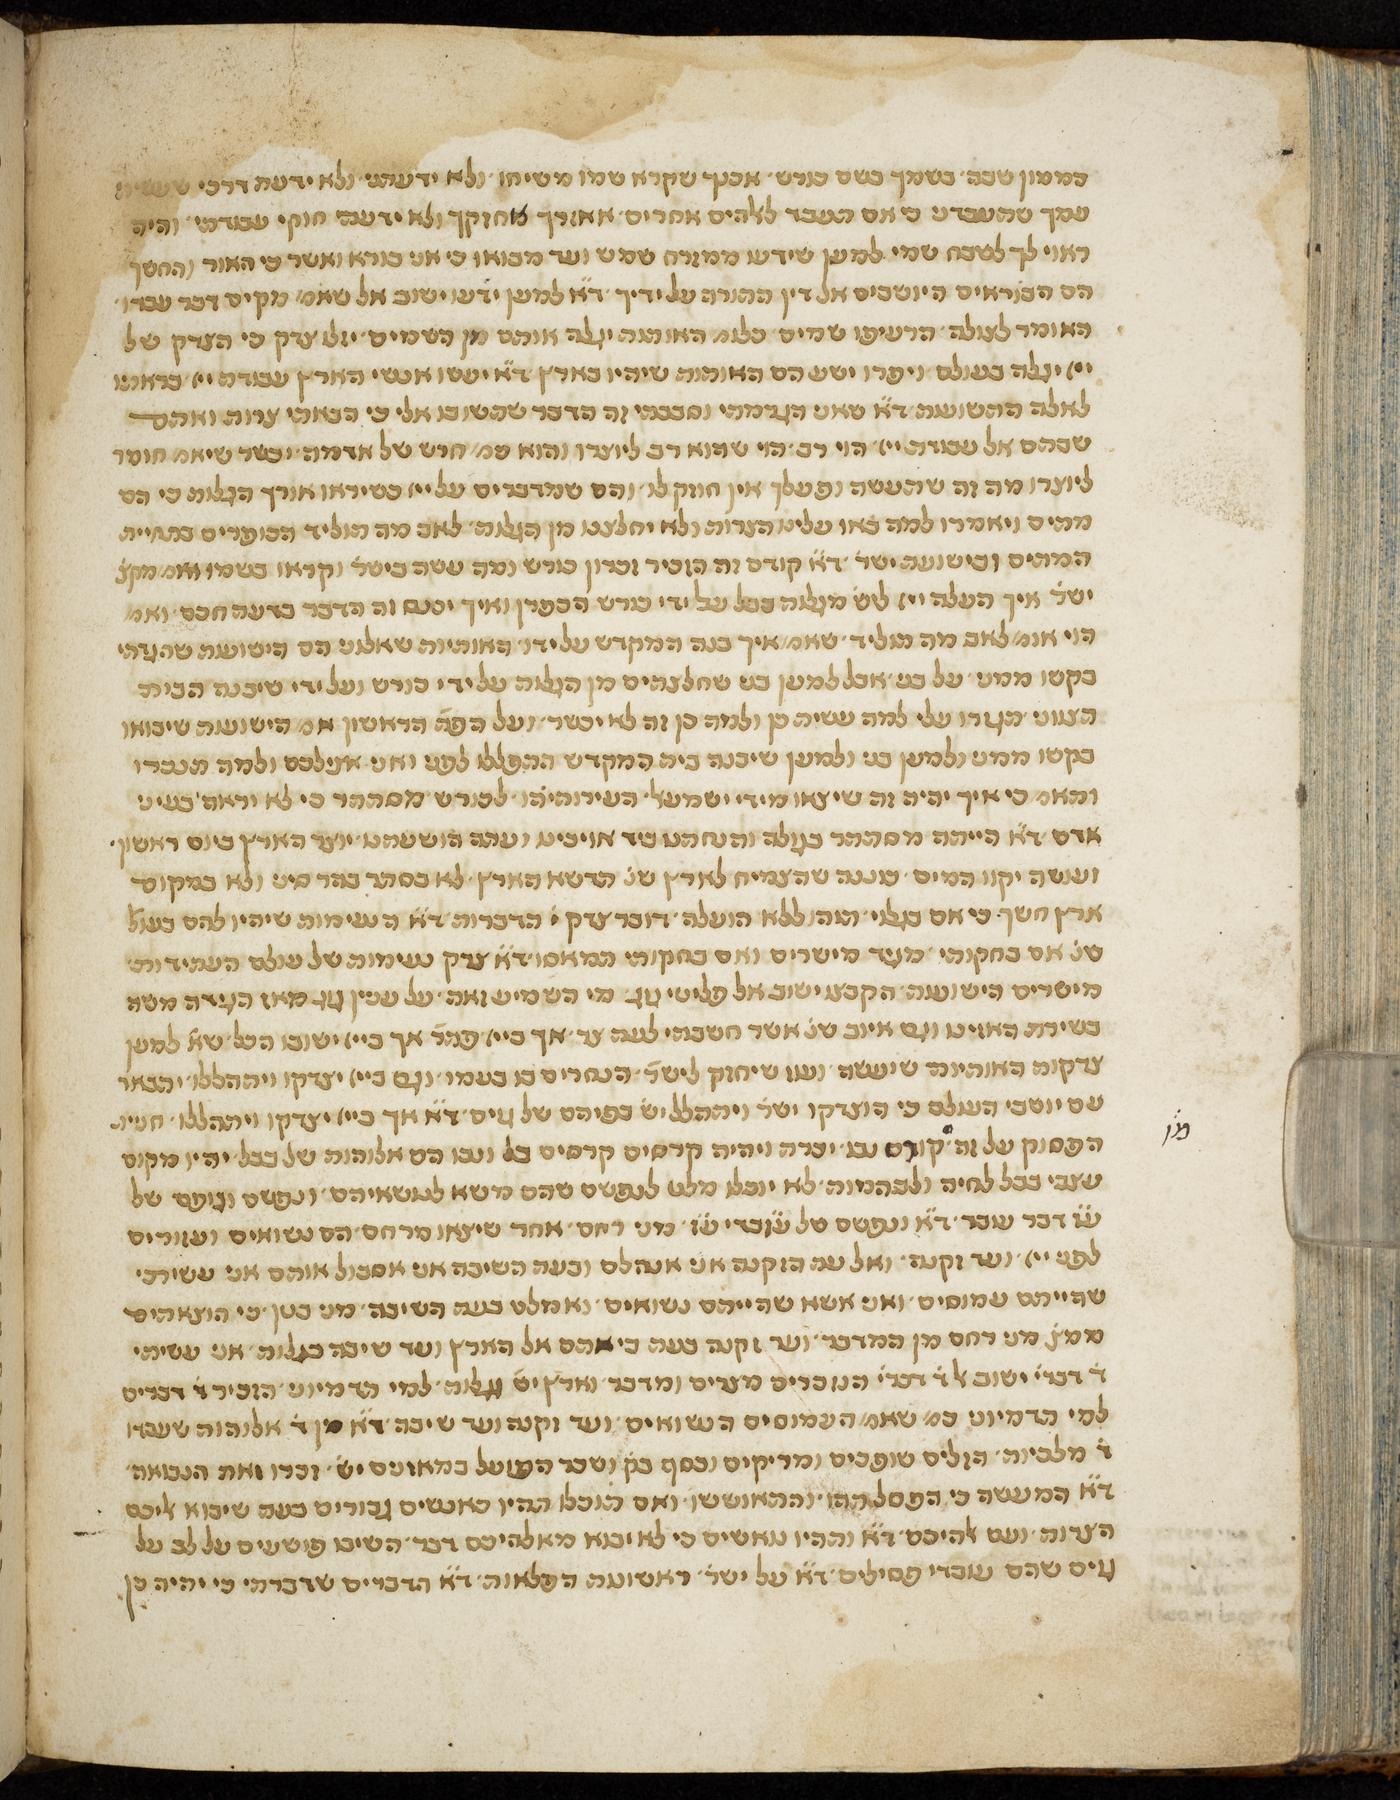 כממון טוב בשמך בשם כורש אכנך שקרא שמו משיחו ולא ידעתני ולא ידעת דרכי
עמך שתעבדני כי אם תעבד לאלהים אחרים אאזרך אחזקך ולא ידעת חוקי עבודתי והיה
ראוי לך לשבח שמי למען שידעו ממזרח שמש ועד מבואו כי אני בורא ואשר כי האור והחשך
הם הבוראים היושבים אל דין התורה על ידיך ד״א למען ידעו ישוב אל שאמ׳ מקים דבר עבדו
האומר לצולה הרעיפו שמים כלומ׳ האותות יגלה אותם מן השמים יזלו צדק כי הצדק של
ייי יגלה בעולם ויפרו ישע הם האותות שיהיו בארץ ד״א יעשו אנשי הארץ עבודת ייי בראותו
לאלה התשועות ד״א שאני הגרמתי וסבבתי זה הדבר שהשובו אלי כי הבאתי צרות ואתם
שבהם אל עבודת ייי הוי רב הוי שהוא רב ליוצרו והוא כמ׳ חרש של אדמה וכשר שיאמ׳ חומר
ליוצרו מה זה שתעשה ופעלך אין חוזק לו והם שמדברים על ייי כשיראו אורך הגלות כי הם
מתים ויאמרו למה באו עלינו הצרות ולא יחלצנו מן הגלות לאב מה תוליד הכופרים בתחיית
המתים ובישועת ישר׳ ד״א קודם זה הזכיר זכרון כורש ומה עשה בישר׳ וקראו בשמו
ישר׳ איך העלה ייי מגלות בבל על ידי כורש הכפרן ואיך יסכים זה הדבר בדעת חכם ואמ׳
הוי אומ׳ לאב מה תוליד שאמ׳ איך בנה המקדש על ידו האותיות שאלוני הם הישועות שהגדתי
בקשו ממני על בני אבל למען בני שחלצתים מן הגלות על ידי כורש ועל ידי שיבנה הבית
תצווני תגזרו עלי למה עשית כן ולמה כן זה לא יכשר ועל הפי׳ הראשון אמ׳ הישועות שיבואו
בקשו ממני ולמען בני ולמען שיבנה בית המקדש התפללו לפני ואני אגילכם ולמה תגברו
ותאמ׳ כי איך יהיה זה שיצאו מידי ישמעל העירותיהו לכורש מסתתר כי לא נראה בעיני
אדם ד״א הייתה מסתתר בגולה והנחתנו ביד אויבינו ועתה הושעתנו יוצר הארץ ביום ראשון
ועושה יקוו המים כוננה שהצמיח לארץ שנ׳ תדשא הארץ לא בסתר בהר סיני ולא במקום
ארץ חשך כי אם בגלוי תוהו ללא הועלה דובר צדק י׳ הדברות ד״א הנעימות שיהיו להם בעול׳
שנ׳ אם בחקותי מגיד מישרים ואם בחקותי תמאסו ד״א צדק נעימות של עולם העתידות
מישרים הישועות הקבצו ישוב אל פליטי גוג מי השמיע זאת על ענין גוג מאז הגידה משה
בשירת האזינו וגם איוב שנ׳ אשר חשכתי לעת צר אך בייי פתר׳ אך בייי ישובו הכל ש״א למען
צדקות האותיות שיעשה ועוז שיחזק לישר׳ הנחרים בו בעמו וגם בייי יצדקו ויתהללו יתבאר
עם יושבי העולם כי הוצדקו ישר׳ ויתהללו יש׳ בפיהם של גוים ד״א אך בייי יצדקו ויתהללו
הפסוק על זה קורס נבו יכרה ויהיה קרסים קרסים בל ונבו הם אלוהות של בבל יהיו מקום
עצבי בבל לחיה ולבהמות לא יוכלו מלט לנפשם שהם משא לנושאיהם ונפשם וגופם של
ע״ז דבר עובד ד״א ונפשם של עובדי ע״ז מני רחם אחר שיצאו מרחם הם נשואים ועזורים
לפני ייי ועד זקנה ואל עת הזקנה אני אנהלם ובעת השיבה אני אסבול אותם אני עשיתי
שהייתם עמוסים ואני אשא שהייתם נשואים ואמלט בעת השיבה מני בטן כי הוצאתים
ממצ׳ מני רחם מן המדבר ועד זקנה בעת כי אתם אל הארץ ועד שיבה בגלות אני עשיתי
ד׳ דברי׳ ישוב אל ד׳ דברי׳ הנזכרים מצרים ומדבר וארץ יש׳ וגלות למי תדמיוני הזכיר ד׳ דברים
למי תדמיוני כמ׳ שאמ׳ העמוסים הנשואים ועד זקנה ועד שיבה ד״א מן ד׳ אלוהות שעבדו
ד׳ מלכיות הזלים שופכים ומריקים וכסף בק׳ ושכר הפועל במאזנים יש׳ זכרו זאת הנבואה
ד״א המעשה כי הפסל תהו והתאוששו ואם תוכלו תהיו כאנשים גבורים בעת שיבוא אליכם
הצרות ועם אלהיכם ד״א ותהיו נואשים כי לא יבוא מאלהיכם דבר השיבו פושעים על לב על
גוים שהם עובדי פסילים ד״א על ישר׳ ראשונות הפלאות ד״א הדברים שדברתי כי יהיה כן
מן